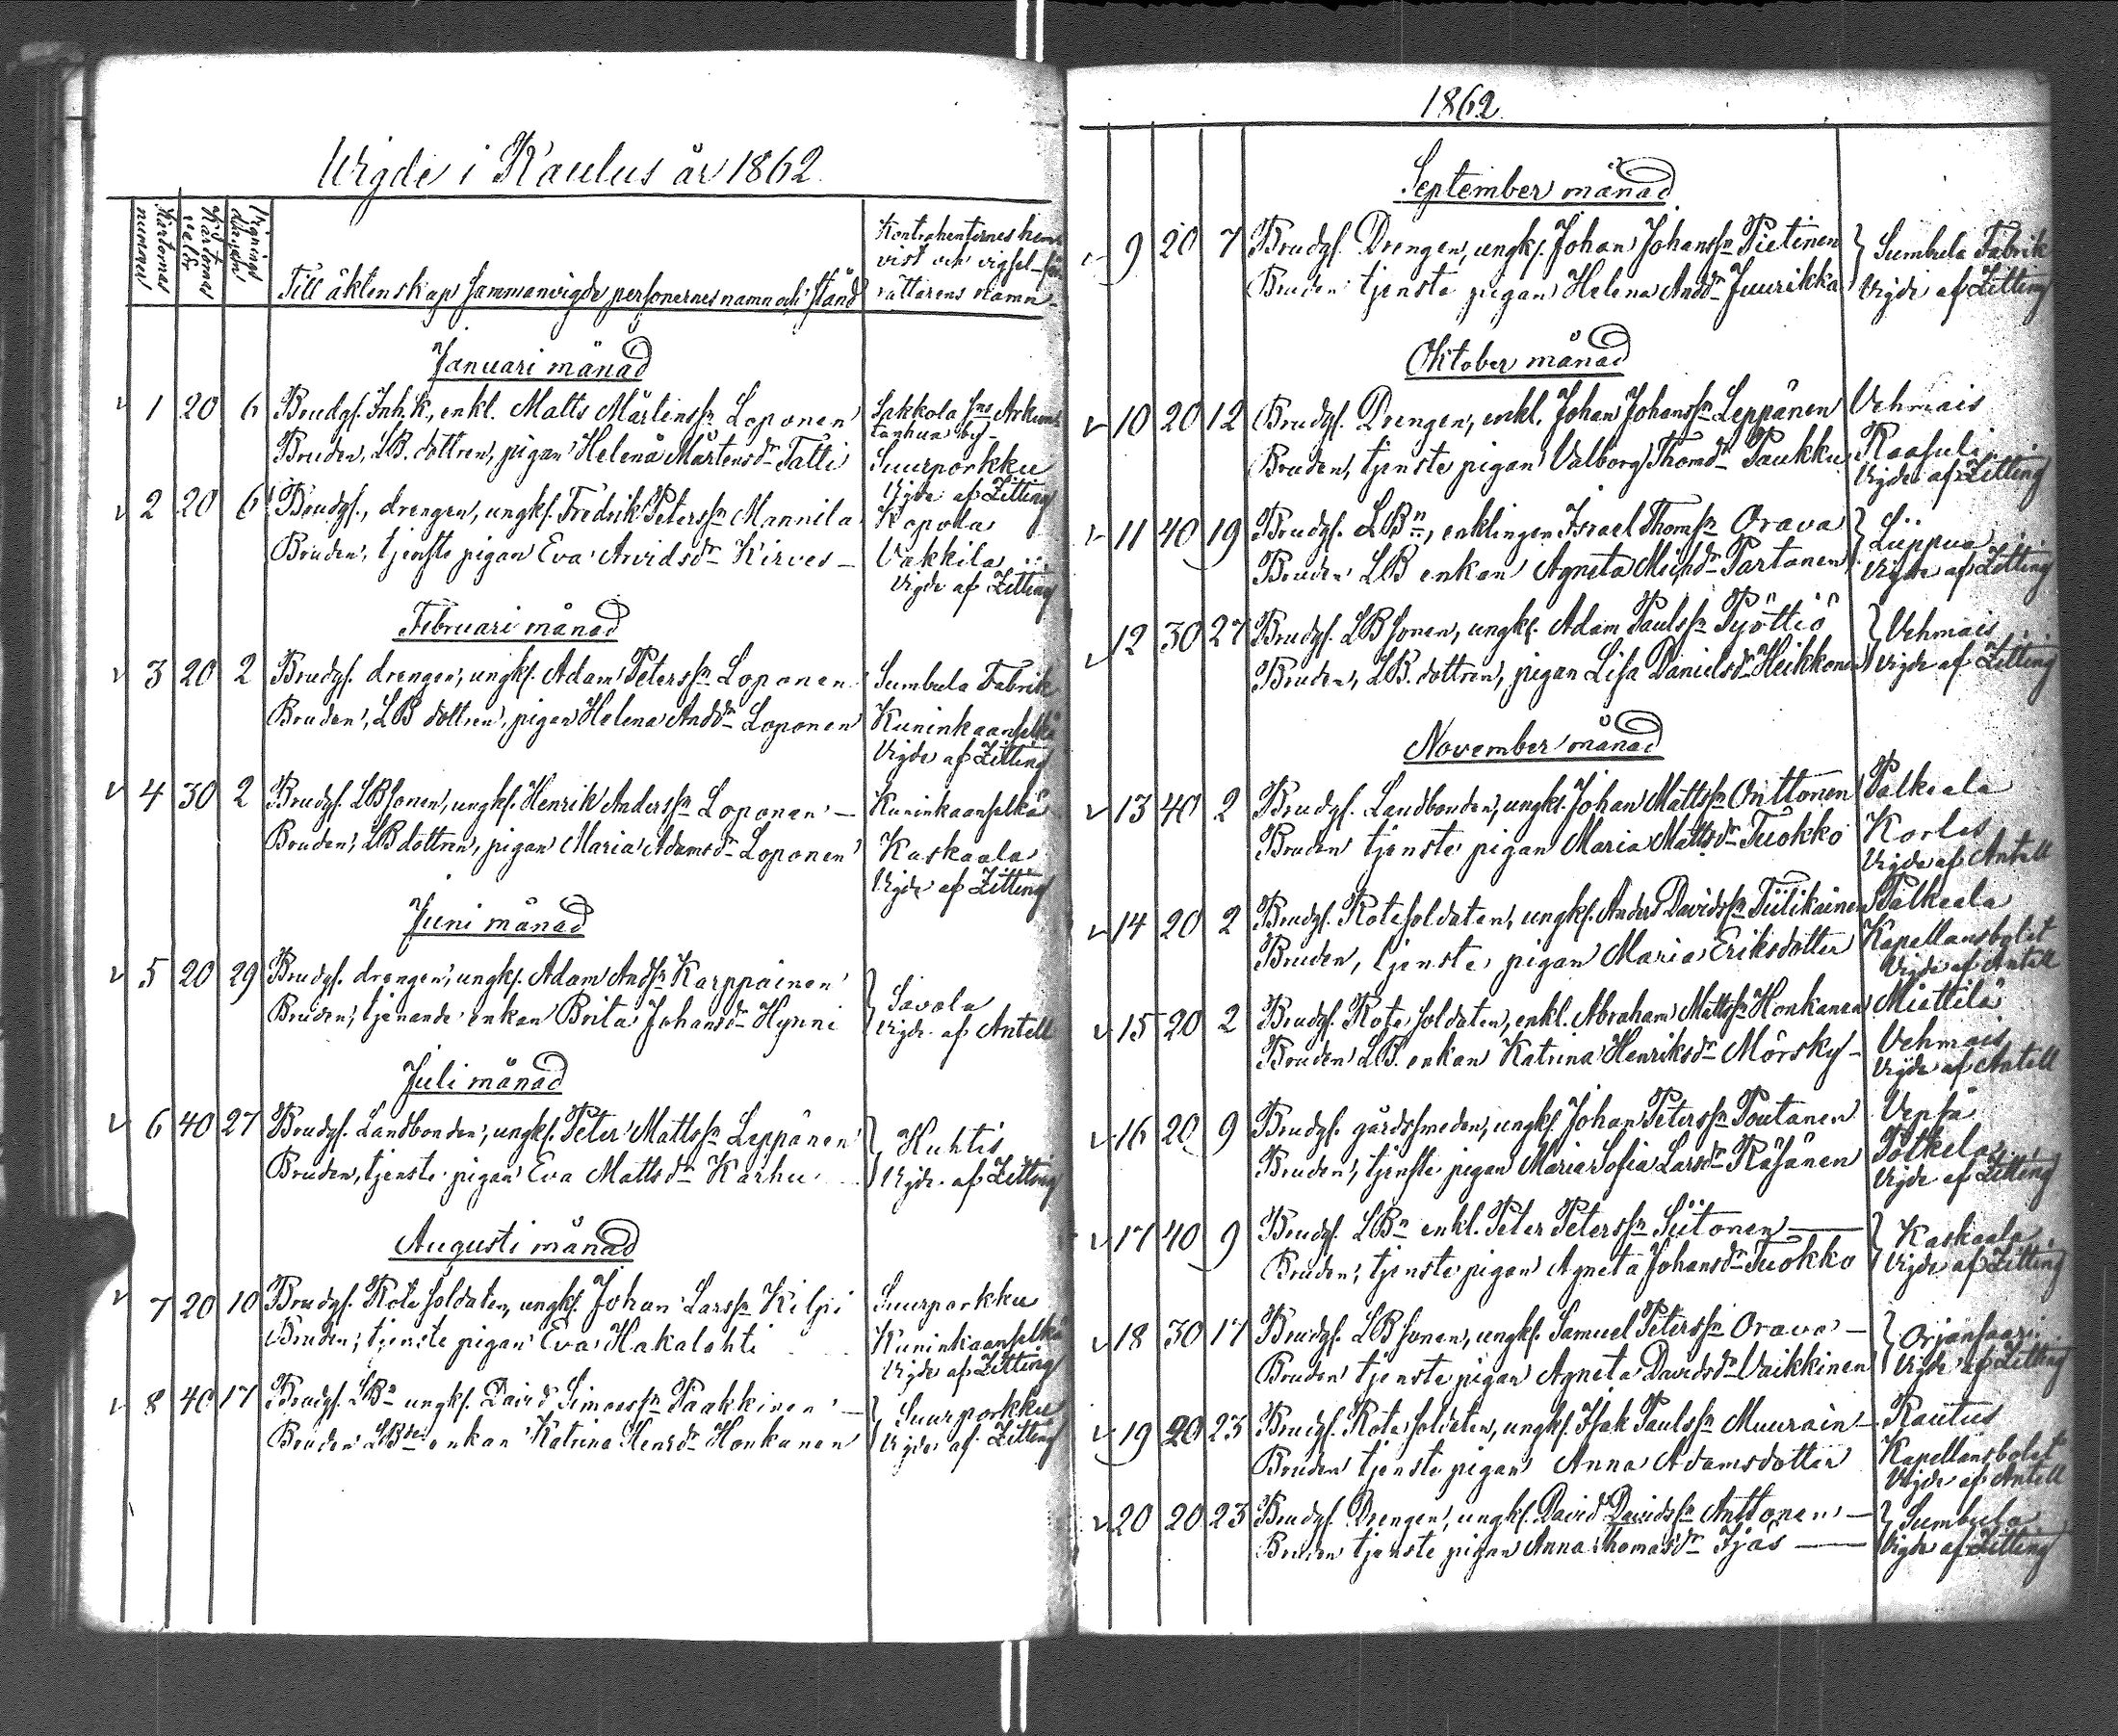 Wigde i Raulus år 1862.
Kartornas nummer
Kartornas valör
Vignings dagen
Till äktenskap sammanvigde personernes namn och stånd
Kontrahenternes hem-
vist och vigsel-för-
rättarens namn
Januari månad
1 20 6 Brudg. Inh. k., enkl. Matts Mårtenssn Loponen Sakkola sn Arkun-
tanhua by -
Bruden, LB. dottren, pigan Helena Mårtensdr Tatti Suurporkku
Vigde af Zitting
2 20 6 Brudg., drengen, ungk. Fredrik Peterssn Mannila Kopola
Bruden, tjenste pigan Eva Arvidsdr Kirves - Vakkila
Vigde af Zitting
Februari månad
3 20 2 Brudg. drengen, ungk. Adam Peterssn Loponen Sumbula Fabrik
Bruden, LB dottren, pigan Helena Andsdr Loponen Kuninkaanselkä
Vigde af Zitting
4 30 2 Brudg. LBsonen, ungk. Henrik Anderssn Loponen - Kuninkaanselkä
Bruden, LB dottren, pigan Maria Adamsdr Loponen Kaskaala
Vigde af Zitting
Juni månad
5 20 29 Brudg. drengen, ungk. Adam Andsn Karppainen Savola
Bruden, tjenande enkan Brita Johansdr Hynni Vigde af Antell
Juli månad
6 40 27 Brudg. Landbonden, ungk. Peter Mattssn Leppänen Huhtis
Bruden, tjenste pigan Eva Mattsdr Karhu Vigde af Zitting
Augusti månad
7 20 10 Brudg. Rote soldaten, ungk. Johan Larssn Kilpi Suurporkku
Bruden, tjenste pigan Eva Hakalahti Kuninkaanselkä
Vigde af Zitting
8 40 17 Brudg. LBn ungk. David Simonssn Paakkinen - Suurporkku
Bruden LBde enkan Katrina Henrsdr Honkanen Vigde af Zitting
1862.
September månad
9 20 7 Brudg. Drengen, ungk. Johan Johanssn Pietinen Sumbula Fabrik
Bruden tjenste pigan Helena Andsdr Juurikka Vigde af Zitting
Oktober månad
10 20 12 Brudg. Drengen, enkl. Johan Johanssn Leppänen Vehmais
Bruden, tjenste pigan Valborg Thomdr Paukku Raasuli
Vigde af Zitting
11 40 19 Brudg. LBn, enklingen Israel Thomsn Orava Liippua
Bruden LB enkan Agneta Michdr Partanen Vigde af Zitting
12 30 27 Brudg. LBsonen, ungk. Adam Paulssn Pyöttiö Vehmais
Bruden, LB. dottren, pigan Lisa Danielsdr Heikkonen Vigde af Zitting
November månad
13 40 2 Brudg. Landbonden, ungk. Johan Mattssn Onttonen Palkeala
Bruden tjenste pigan Maria Mattsdr Tuokko Korles
Vigde af Antell
14 20 2 Brudg. Rotesoldaten, ungk. Anders Davidssn Tiilikainen Palkeala
Bruden, tjenste pigan Maria Eriksdotter Kapellansbolet
Vigde af Antell
15 20 2 Brudg. Rote soldaten, enkl. Abraham Mattssn Honkanen Miettilä
Bruden LB. enkan Katrina Henriksdr Mörsky - Vehmais
Vigde af Antell
16 20 9 Brudg. gårdssmeden, ungk. Johan Peterssn Poutanen Vepsä
Bruden, tjenste pigan Maria Sofia Larsdr Räsänen Potkela
Vigde af Zitting
17 40 9 Brudg. LBn enkl. Peter Peterssn Siitonen - Kaskaala
Bruden, tjenste pigan Agneta Johansdr Tuokko Vigde af Zitting
18 30 17 Brudg. LB sonen, ungk. Samuel Peterssn Orava - Orjansaari
Bruden tjenste pigan Agneta Davidsdr Vaikkinen Vigde af Zitting
19 20 23 Brudg. Rote soldaten, ungk. Isak Paulssn Muurain - Rautus
Bruden tjenste pigan Anna Adamsdotter Kapellansbolet
Vigde af Antell
20 20 23 Brudg. Drengen, ungk. David Davidssn Anttonen - Sumbula
Bruden tjenste pigan Anna Thomasdr Ijäs - Vigde af Zitting